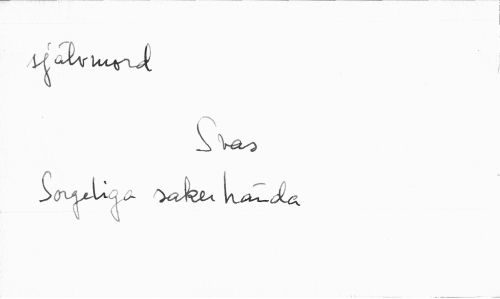 självmord
Svas
Sorgeliga saker hända